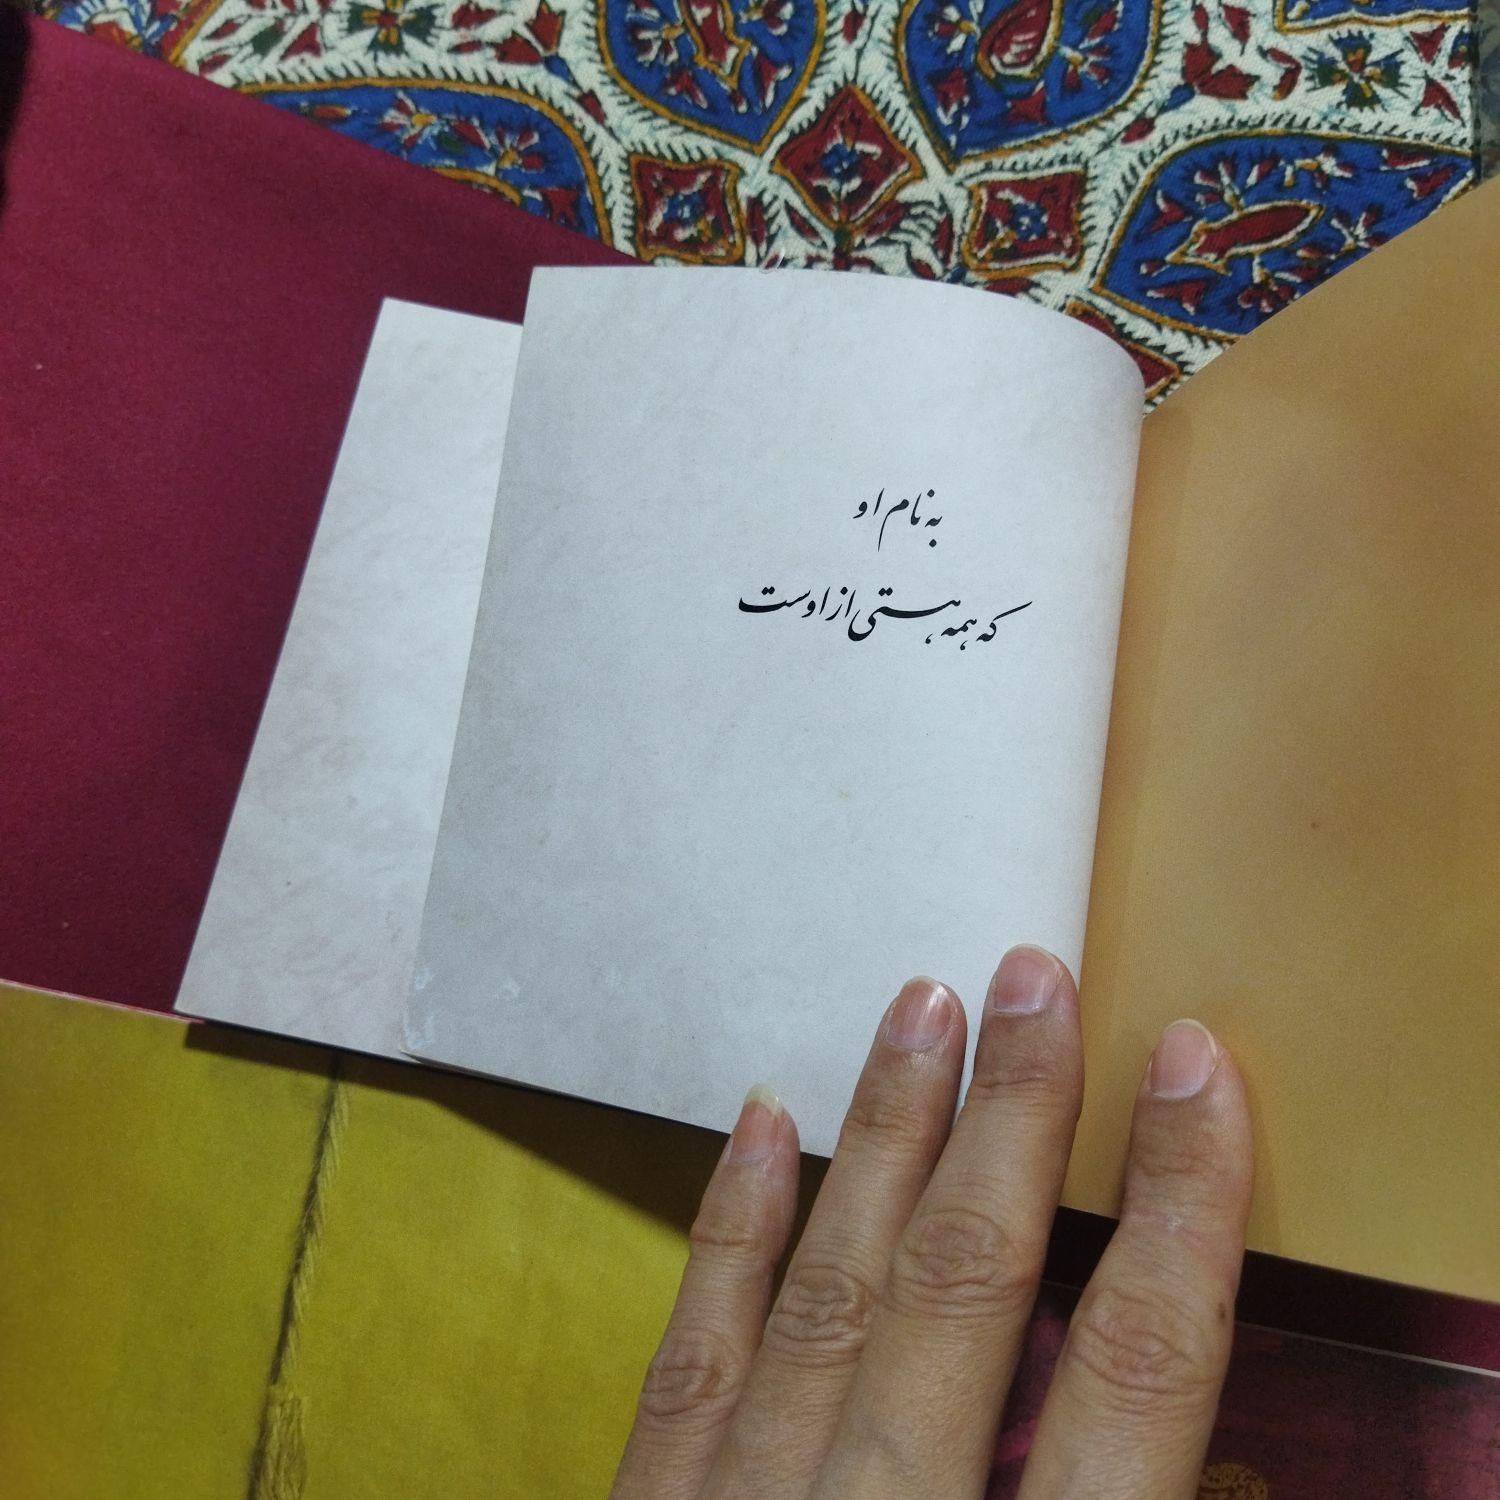 به نام او
که همه هستی از اوست